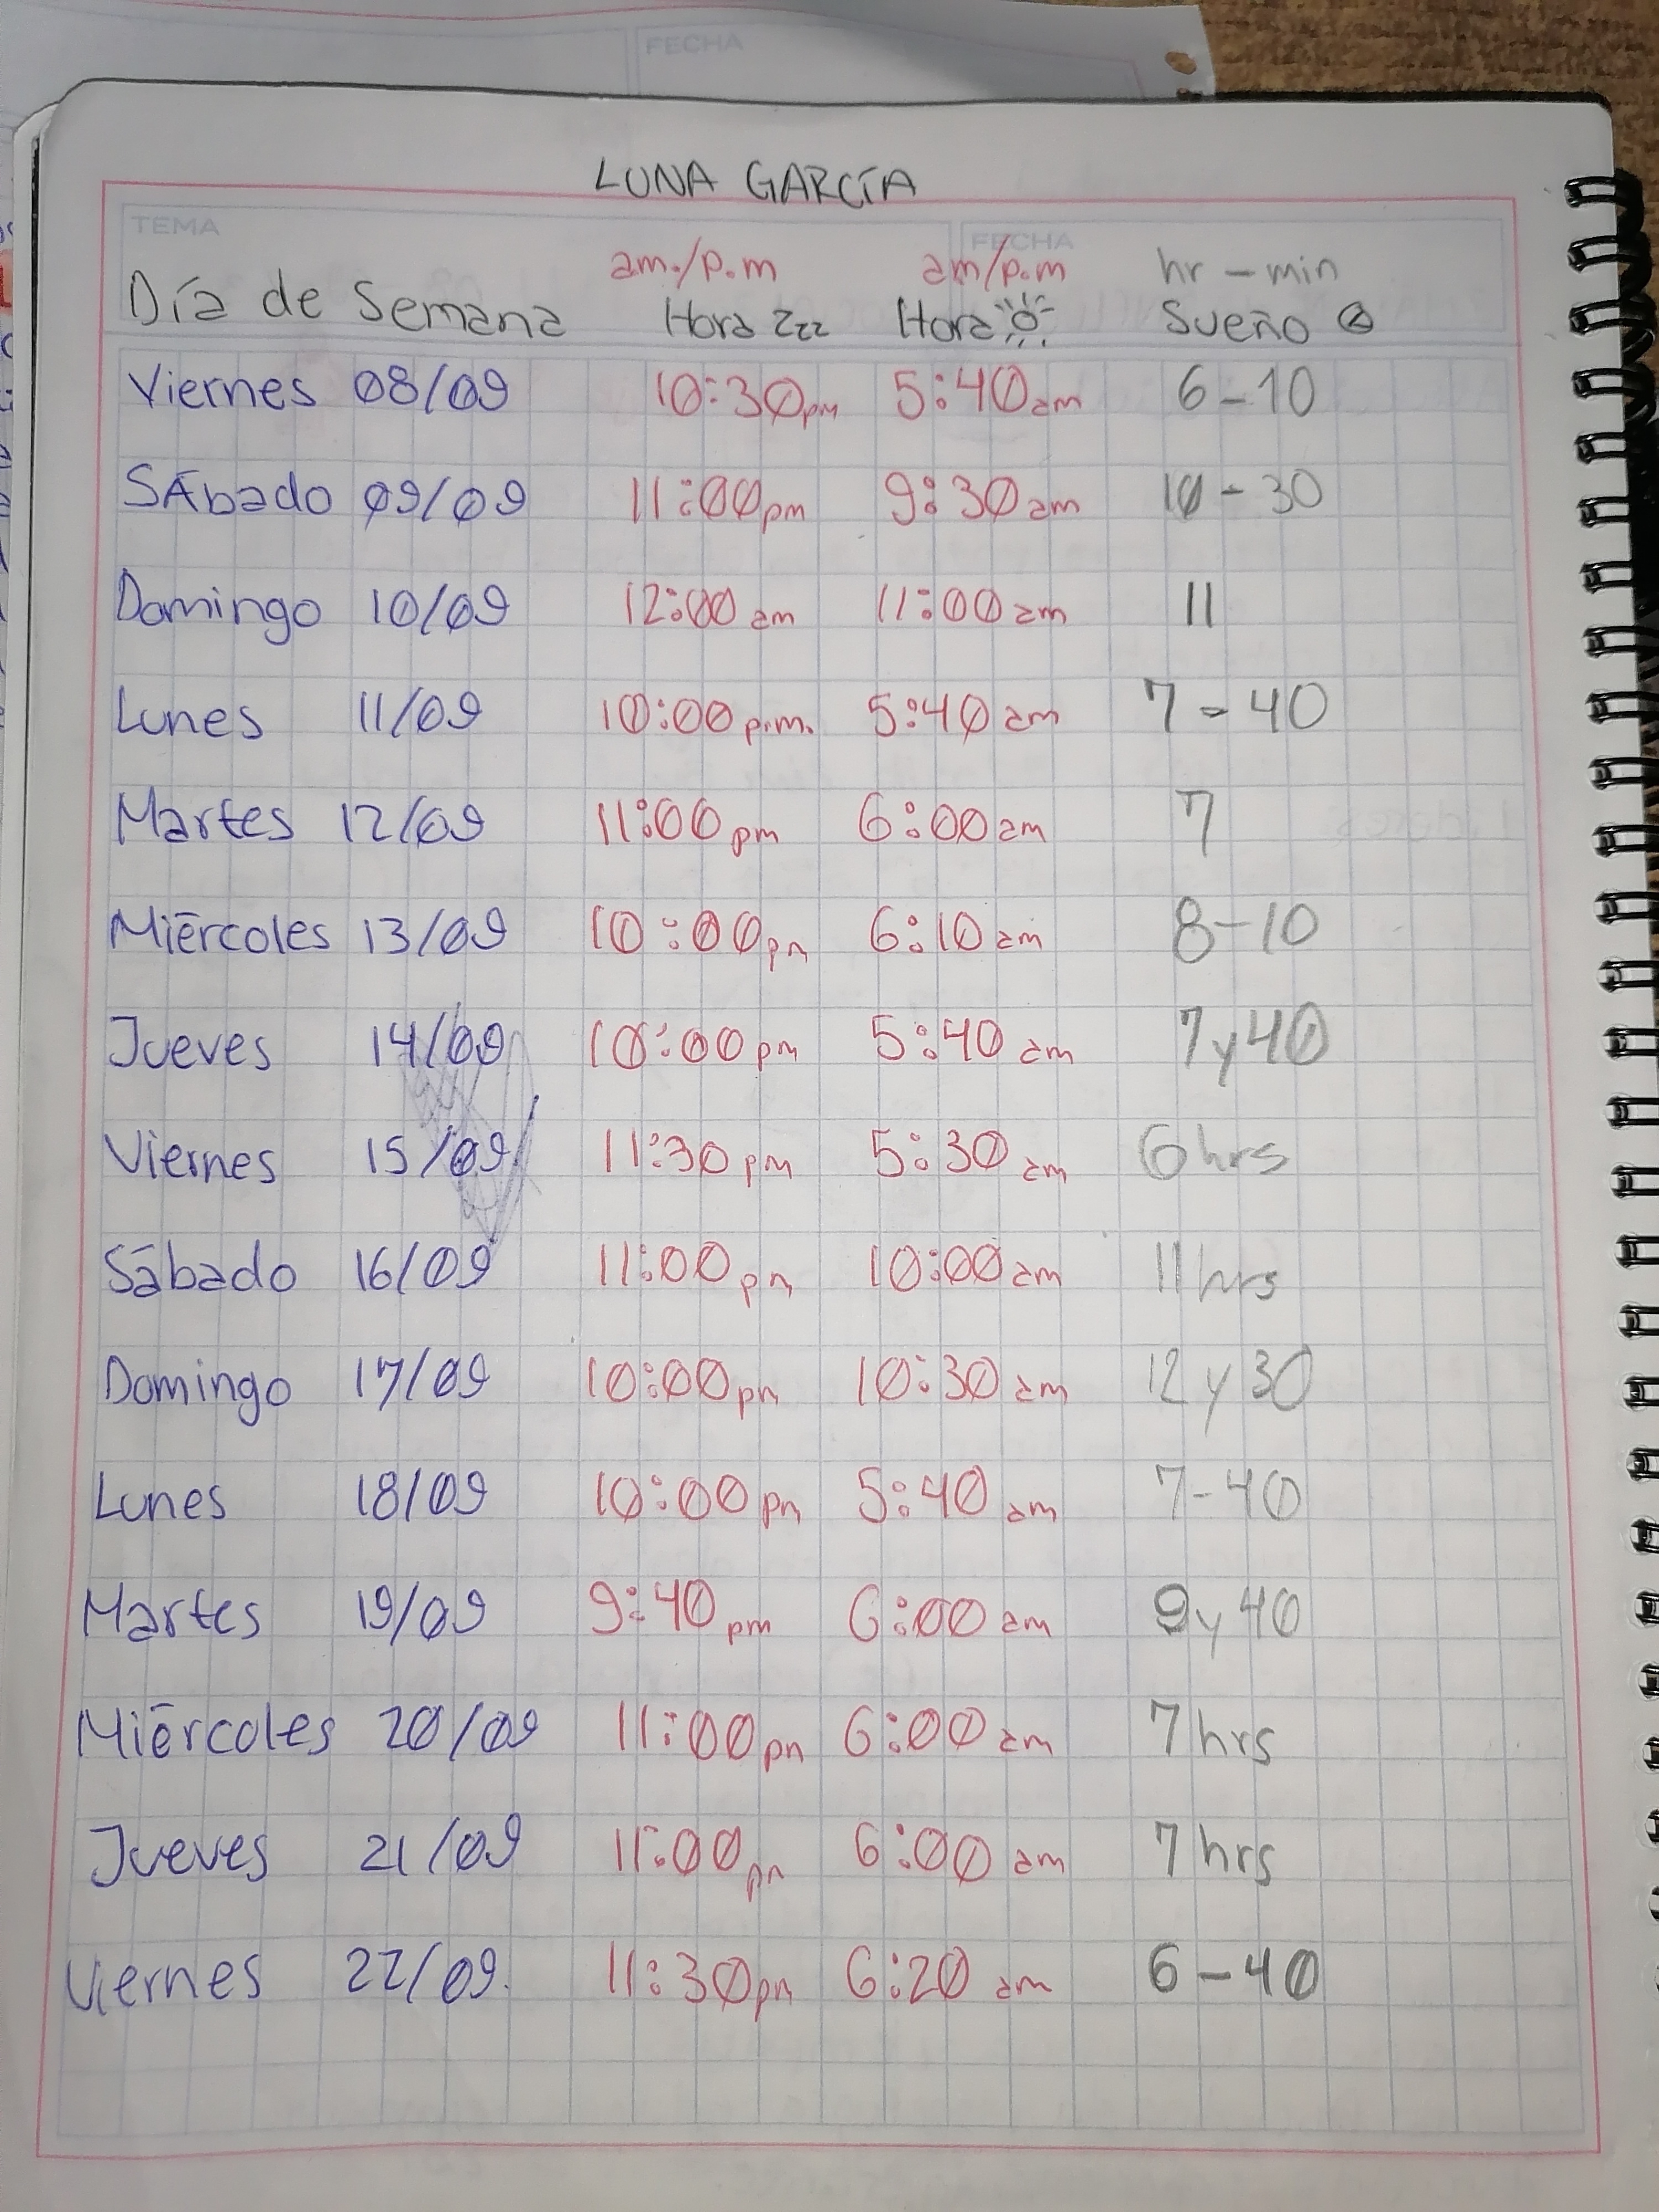 FECHA
LUNA GARCÍA
TEMA FECHA
am./p.m am/p.m hr - min
Día de Semana Hora zzz Hora Sueño
Viernes 08/09 10:30pm 5:40am 6-10
SÁbado 09/09 11:00pm 9:30am 10-30
Domingo 10/09 12:00am 11:00am 11
Lunes 11/09 10:00p.m. 5:40am 7-40
Martes 12/09 11:00pm 6:00am 7
Miércoles 13/09 10:00pm 6:10am 8-10
Jueves 14/09 10:00pm 5:40am 7y40
Viernes 15/09 11:30pm 5:30am 6hrs
Sábado 16/09 11:00pm 10:00am 11hrs
Domingo 17/09 10:00pm 10:30am 12y30
Lunes 18/09 10:00pm 5:40am 7-40
Martes 19/09 9:40pm 6:00am 9y40
Miércoles 20/09 11:00pm 6:00am 7hrs
Jueves 21/09 11:00pm 6:00am 7hrs
Viernes 22/09. 11:30pm 6:20am 6-40